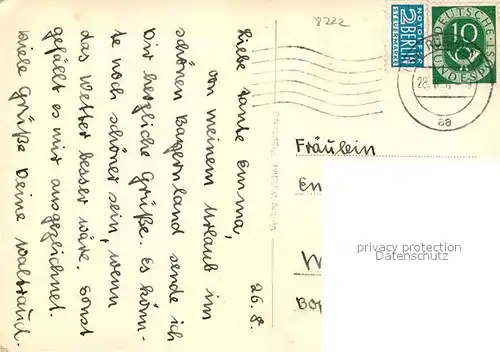 8222
26. 8.
Liebe Tante Emma,
von meinem Urlaub im
schönen Bayernland sende ich
Dir herzliche Grüße. Es könn-
te noch schöner sein, wenn
das Wetter besser wäre. Sonst
gefällt es mir ausgezeichnet.
Viele Grüße Deine Waltraud.
NOTOPFER
2 BERLIN
STEUERMARKE
DEUTSCHE
10
BUNDESPOST
28.
aa
Fräulein
Em
W
Bop
privacy protection
Datenschutz